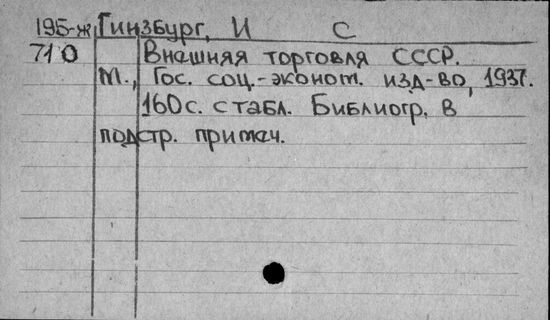 195-ж Гинзбург, И С
710 Внешняя торговля СССР.
М., Гос. соц.-эконом. изд-во, 1937.
160с. с табл. Библиогр. в
подстр. примеч.